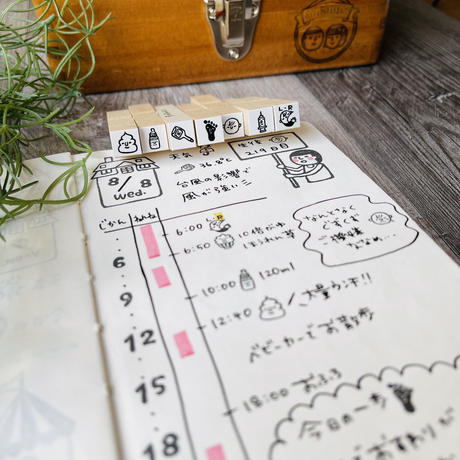 L・R
8/8
Wed.
天気
36.8℃
生後
219日目
台風の影響で
風が強い
じかん
ねんね
なんとなく
ぐずぐず
ご機嫌
ななめ…
6:00
10倍がゆ
6:50
ほうれん草
10:00
120ml
12:40
大量ウンチ!!
ベビーカーでお散歩
18:00
おふろ
今日の一歩
6
9
12
15
18